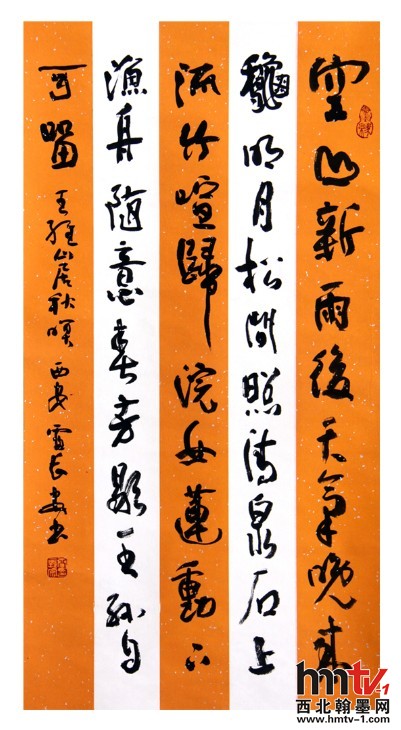 空山新雨後天氣晚來
龝明月松間照清泉石上
流竹喧歸浣女蓮動下
漁舟隨意春芳歇王孫自
可留 王維山居秋暝 雷长安书
hmtv-1
西北翰墨网
www.hmtv-1.com